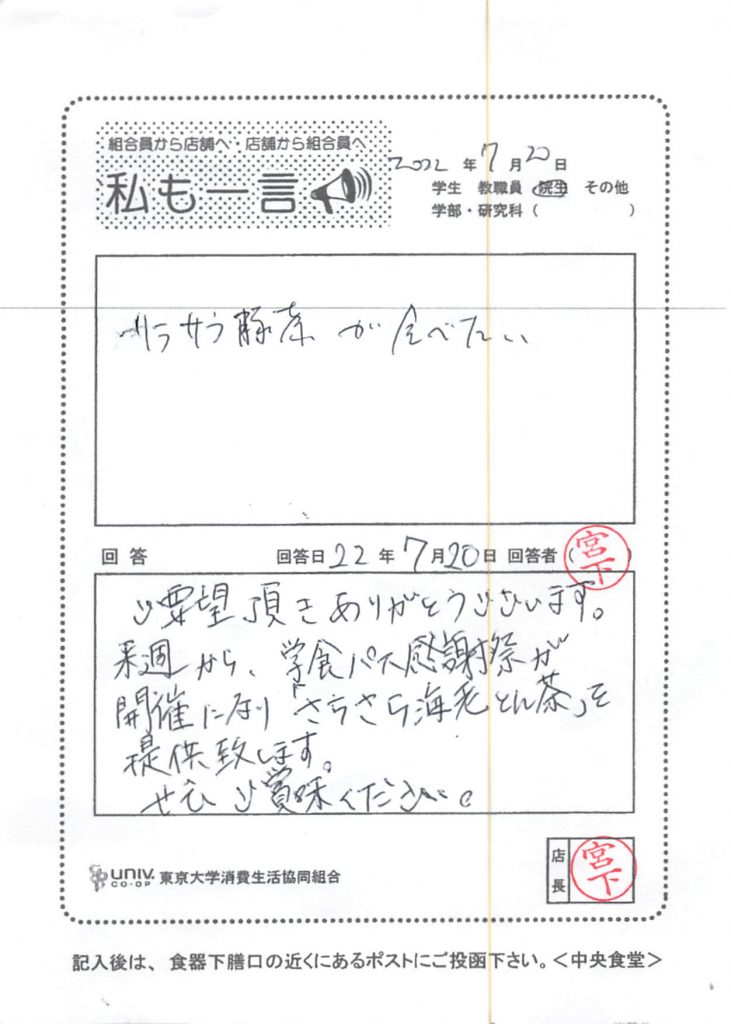 組合員から店舗へ・店舗から組合員へ
私も一言
2022年7月20日
学生 教職員 院生 その他
学部・研究科( )
サラサラ豚茶が食べたい
回答 回答日22年7月20日 回答者(宮下)
ご要望頂きありがとうございます。
来週から、学食パス感謝祭が
開催になり「さらさら海老とん茶」を
提供致します。
ぜひご賞味ください。
UNIV. CO-OP 東京大学消費生活協同組合
店長 宮下
記入後は、食器下膳口の近くにあるポストにご投函下さい。<中央食堂>